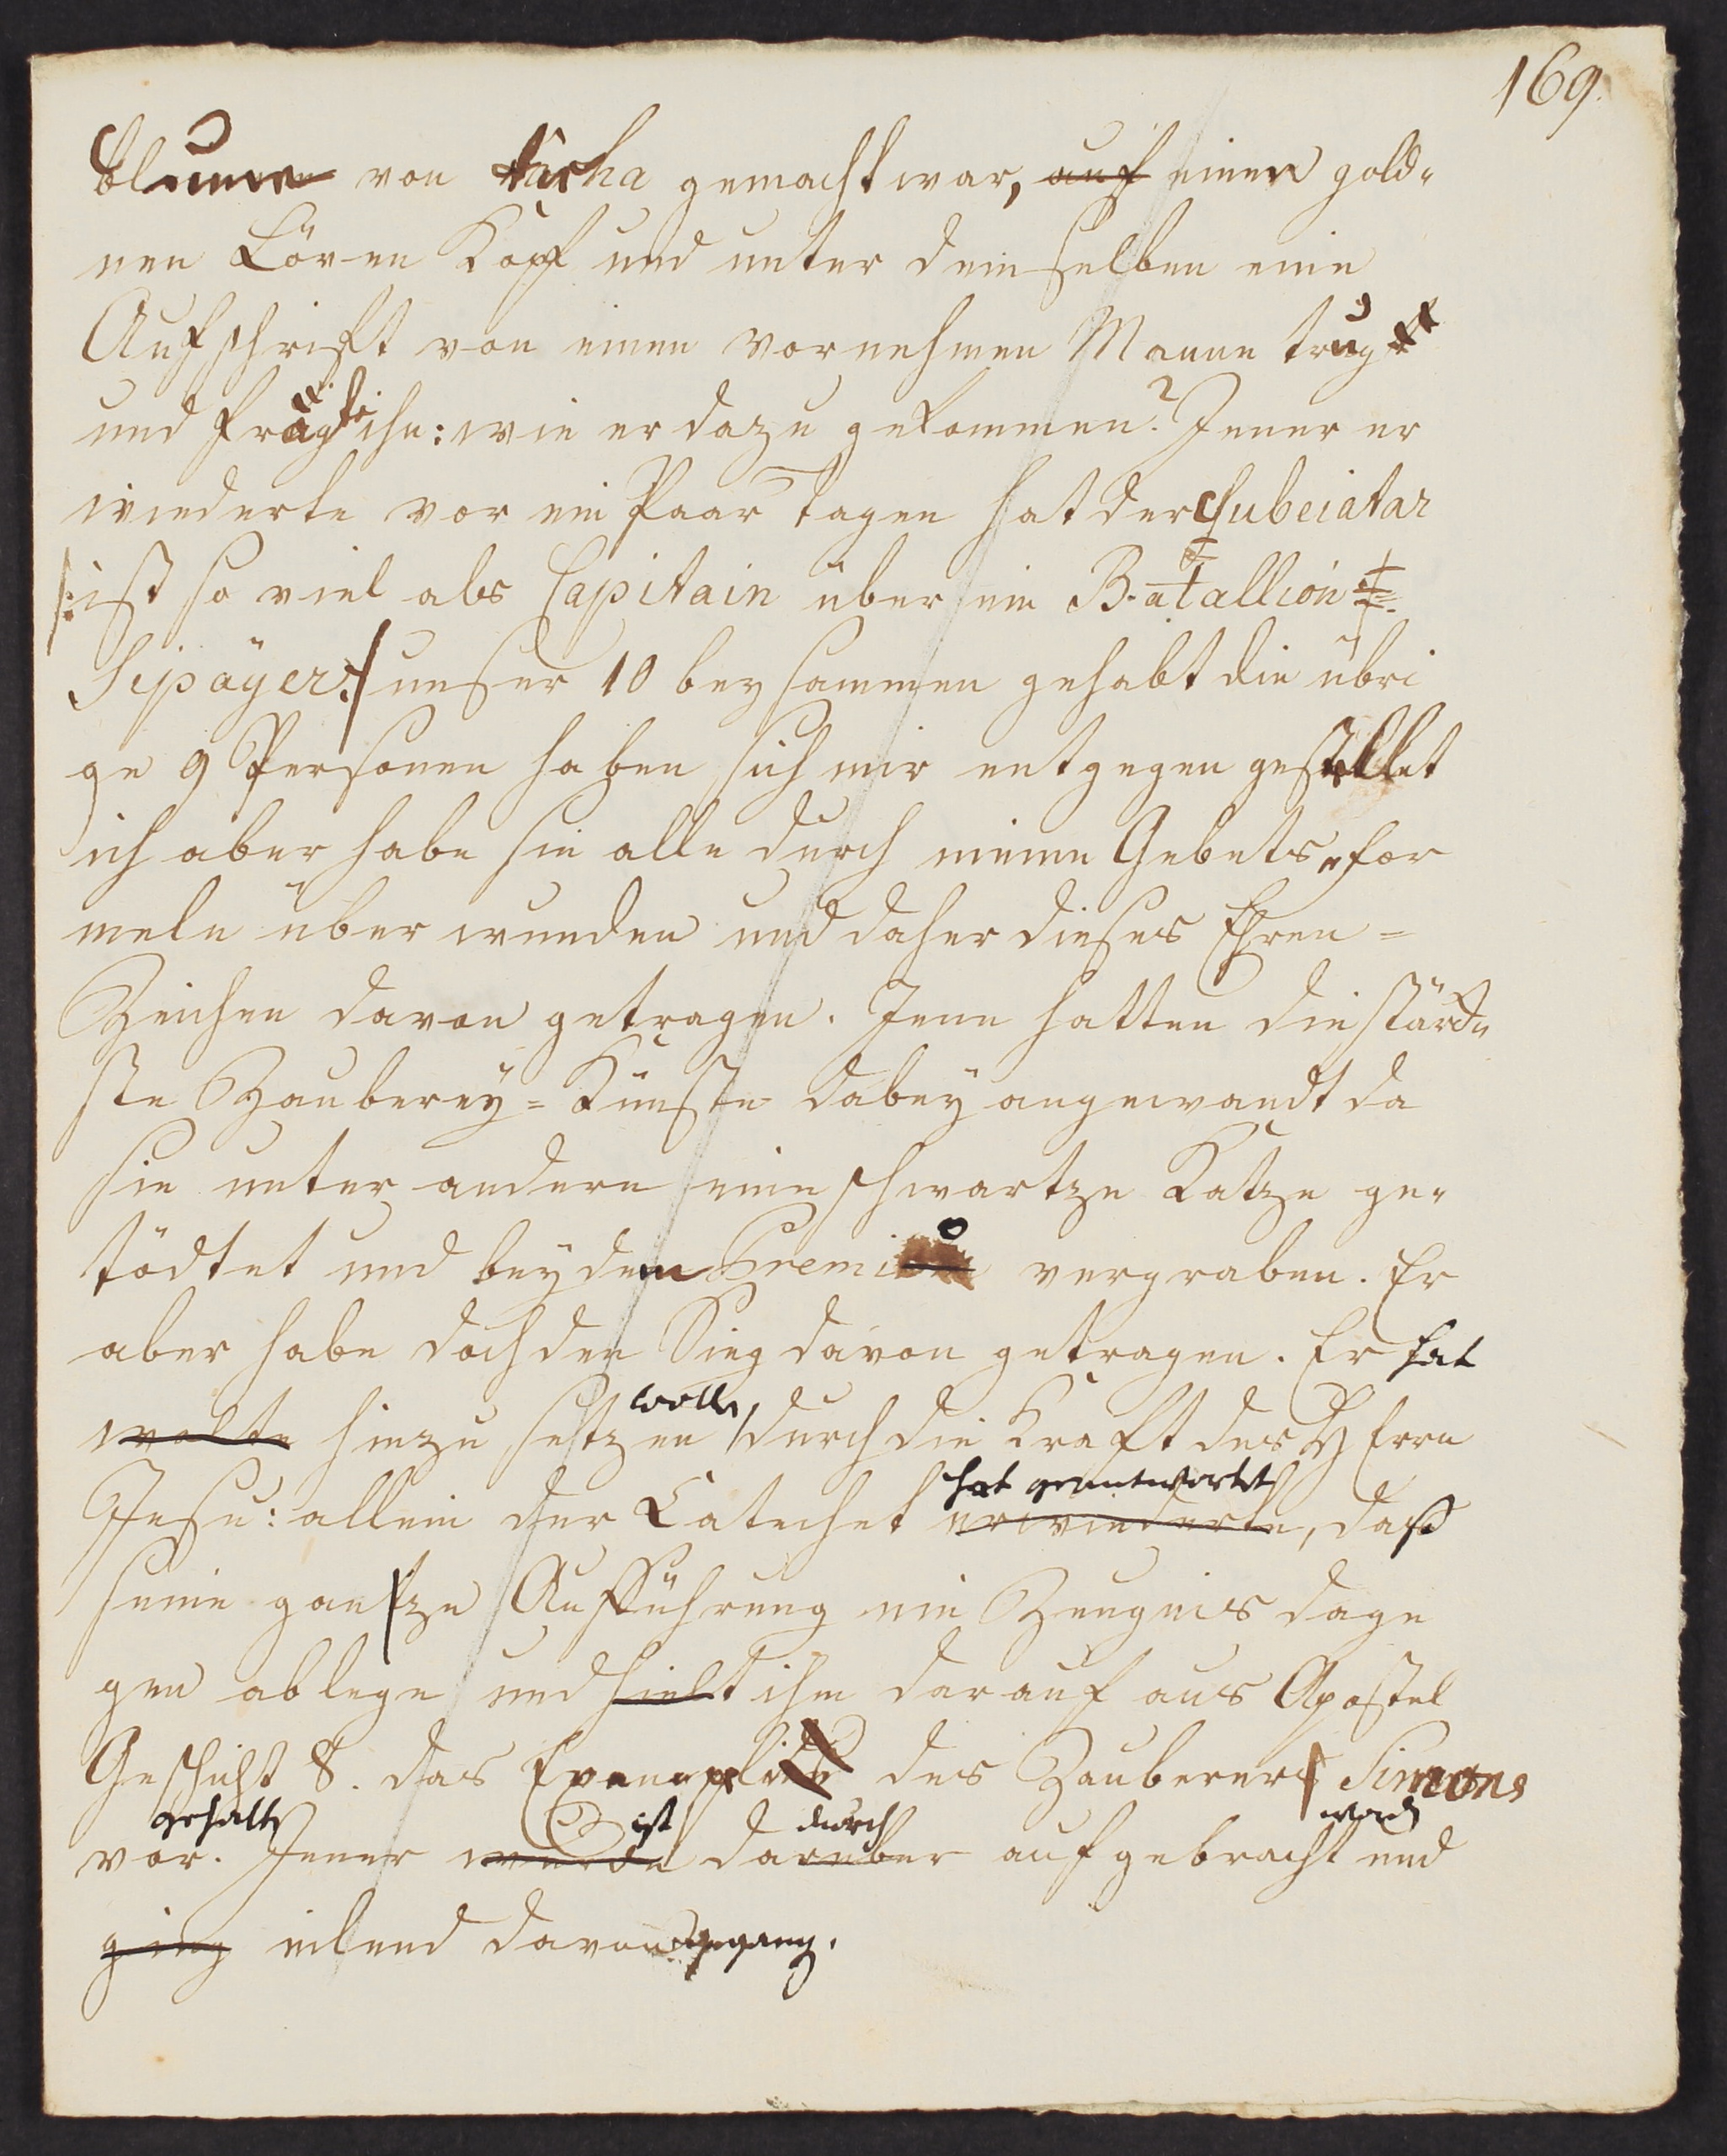 169.
blume von tuscha gemacht war, auf einen gold-
nen Löwen Kopf und unter demselben eine
Aufschrift von einem vornehmen Manne trug
und fragte ihn: wie er dazu gekommen? Jener er
wiederte vor ein Paar Tagen hat der Subeiatar
/: ist so viel als Capitain über ein Batallion
Sipäyer :/ unser 10 beysammen gehabt die übri
ge 9 Personen haben sich mir entgegen gestellet
ich aber habe sie alle durch meine Gebets-for
meln überwunden und daher dieses Ehren=
Zeichen davon getragen. Jene hatten die stärck-
ste Zauberey=Künste dabey angewandt da
sie unter andern eine schwartze Katze ge-
tödtet und bey dem vergraben. Er
aber habe doch den Sieg davon getragen. Er hat
wolte hinzu setzen wolln, durch die Kraft des HErrn
Jesu: allein der Catechet erwiederte hat geantwortet, daß
seine gantze Aufführung ein Zeugnis dage
gen ablege und hielt ihm darauf aus Apostel
Geschicht 8. das Exempel des Zauberers Simons
vor gehalten. Jener wurde ist darüber durch aufgebracht word und
ging eilend davon gegang.